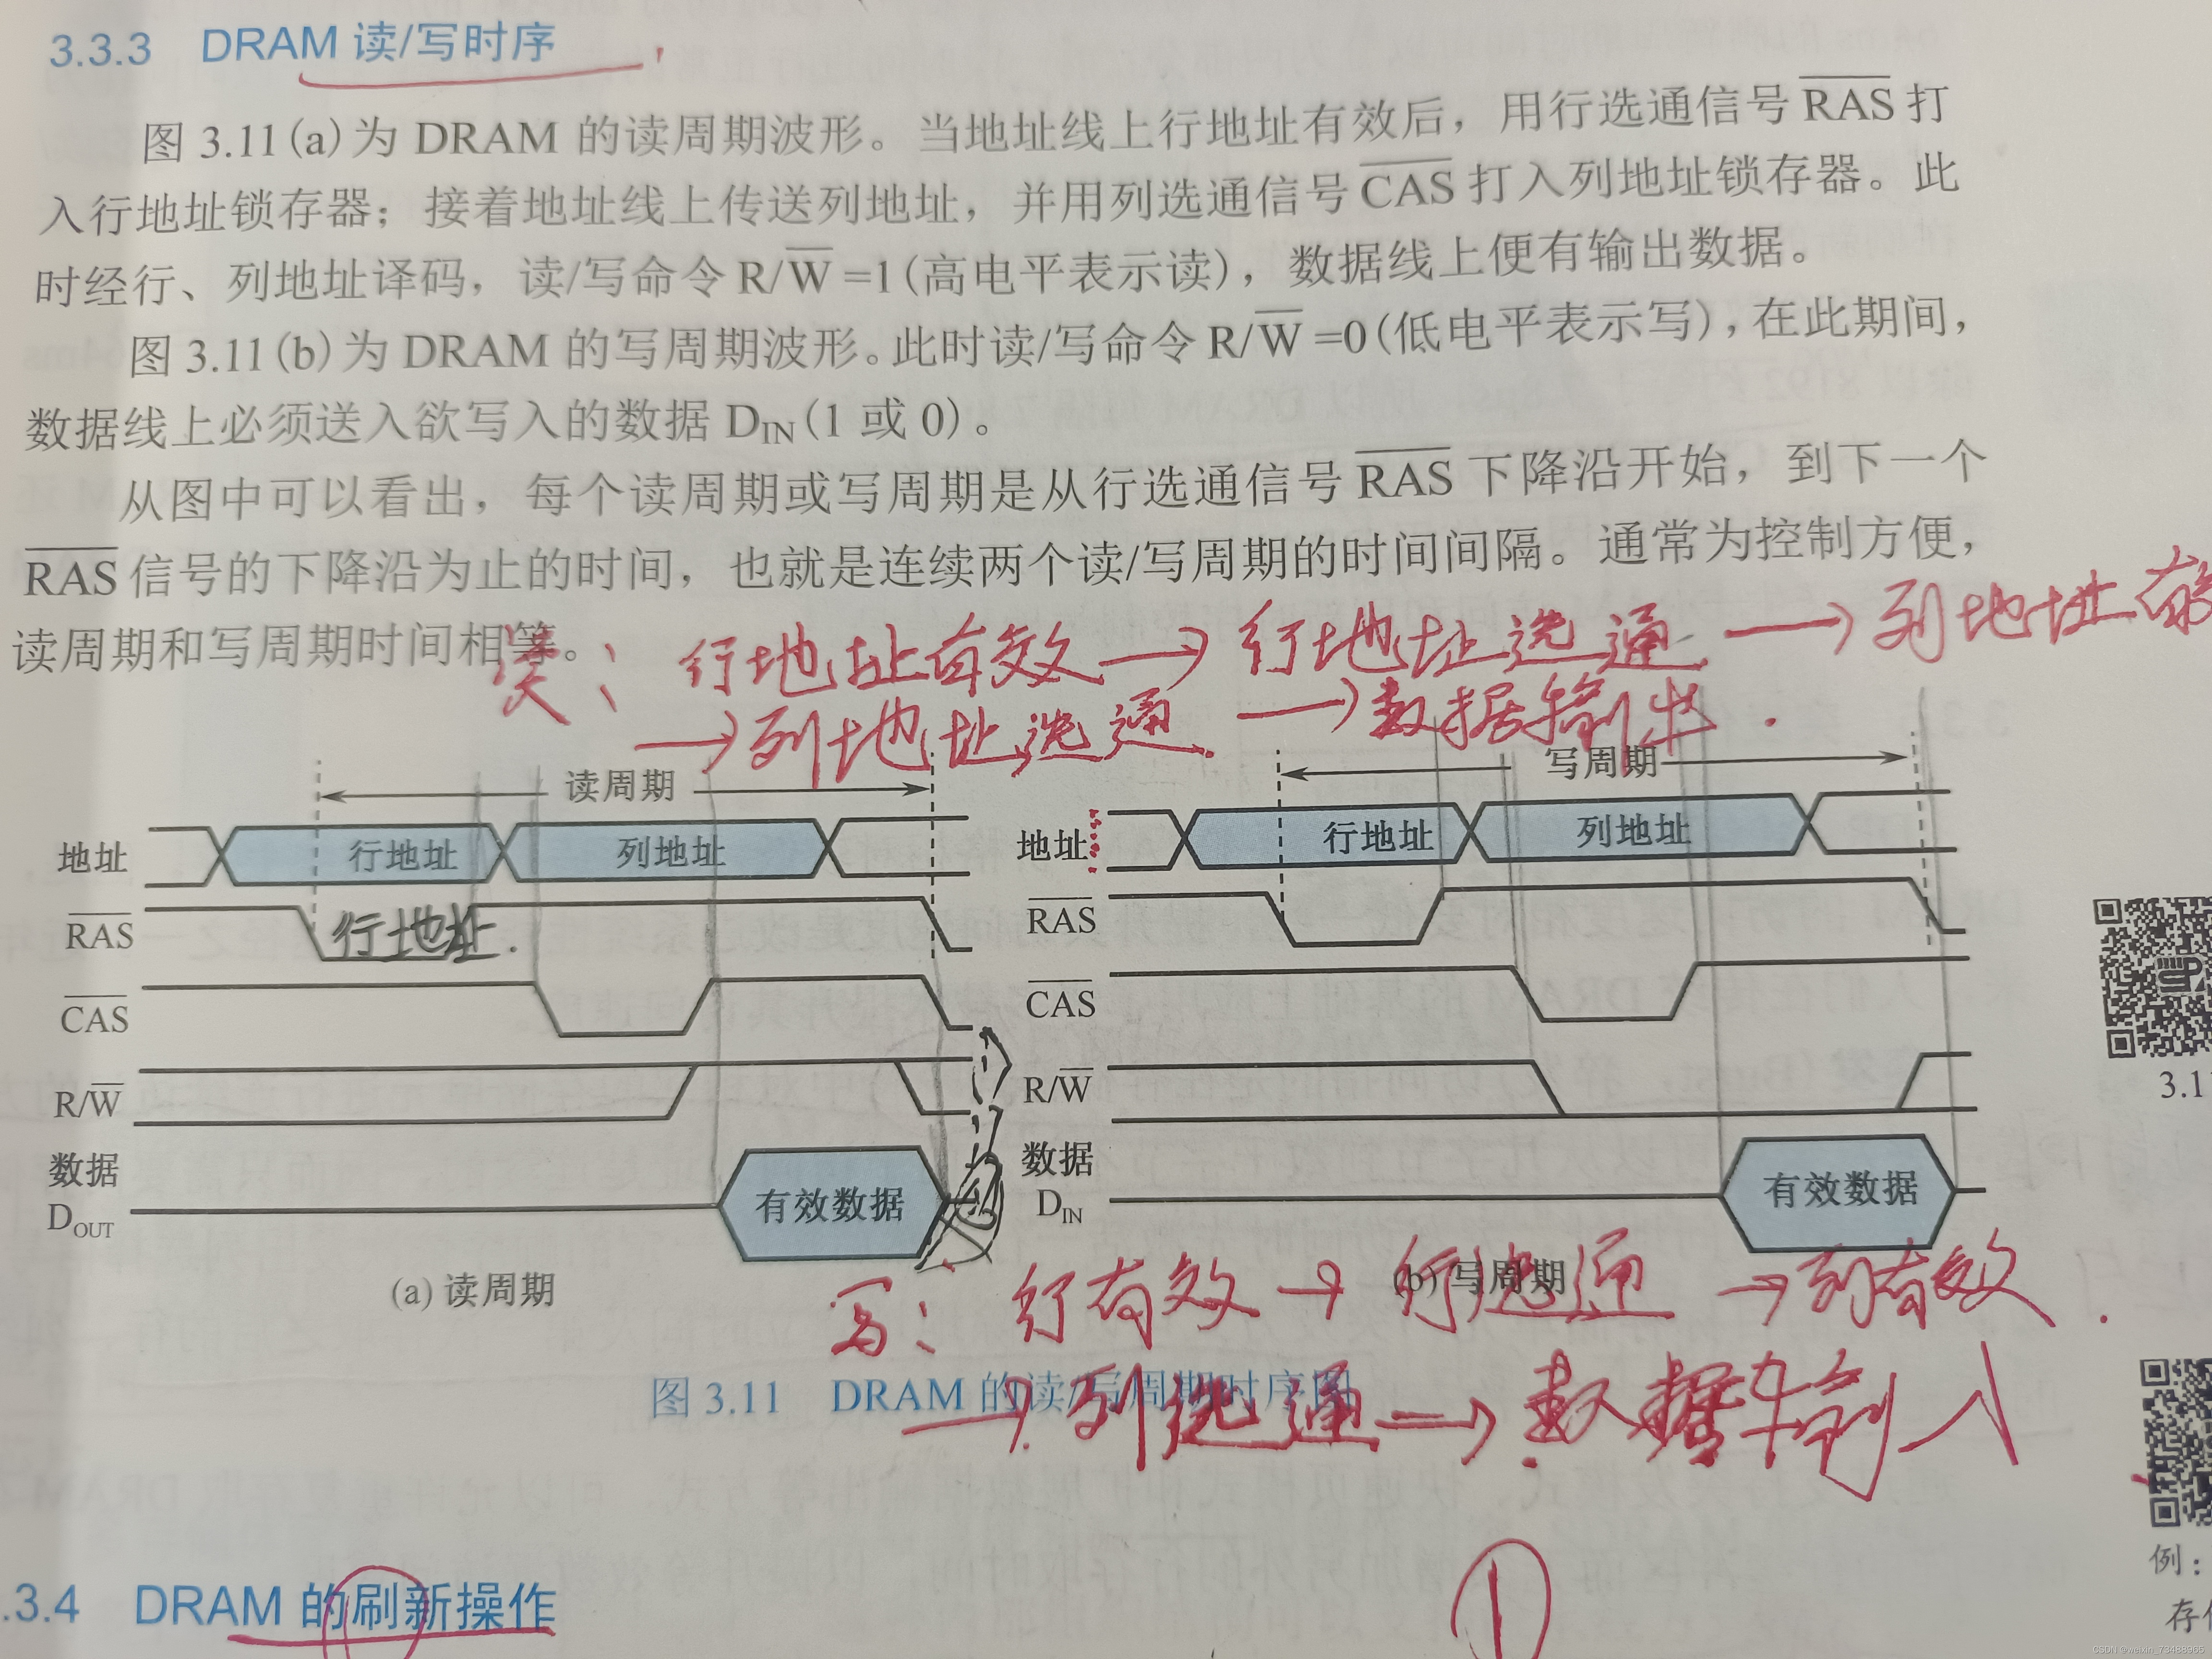 3.3.3 DRAM 读/写时序
图 3.11(a)为 DRAM 的读周期波形。当地址线上行地址有效后，用行选通信号 R̅A̅S̅ 打
入行地址锁存器；接着地址线上传送列地址，并用列选通信号 C̅A̅S̅ 打入列地址锁存器。此
时经行、列地址译码，读/写命令 R/W̅ =1(高电平表示读)，数据线上便有输出数据。
图 3.11(b)为 DRAM 的写周期波形。此时读/写命令 R/W̅ =0(低电平表示写)，在此期间，
数据线上必须送入欲写入的数据 D_IN(1 或 0)。
从图中可以看出，每个读周期或写周期是从行选通信号 R̅A̅S̅ 下降沿开始，到下一个
R̅A̅S̅ 信号的下降沿为止的时间，也就是连续两个读/写周期的时间间隔。通常为控制方便，
读周期和写周期时间相等。
读：行地址有效→行地址选通→列地址有
→列地址选通→数据输出.
读周期
写周期
地址 行地址 列地址
地址 行地址 列地址
R̅A̅S̅ 行地址.
R̅A̅S̅
C̅A̅S̅
C̅A̅S̅
R/W̅
R/W̅
3.1
数据
D_OUT
有效数据
数据
D_IN
有效数据
(a) 读周期
(b) 写周期
写：行有效→行选通→列有效.
图 3.11 DRAM 的读/写周期时序图
→列选通→数据输入
.3.4 DRAM 的刷新操作
①
例：
CSDN @weixin_73488965